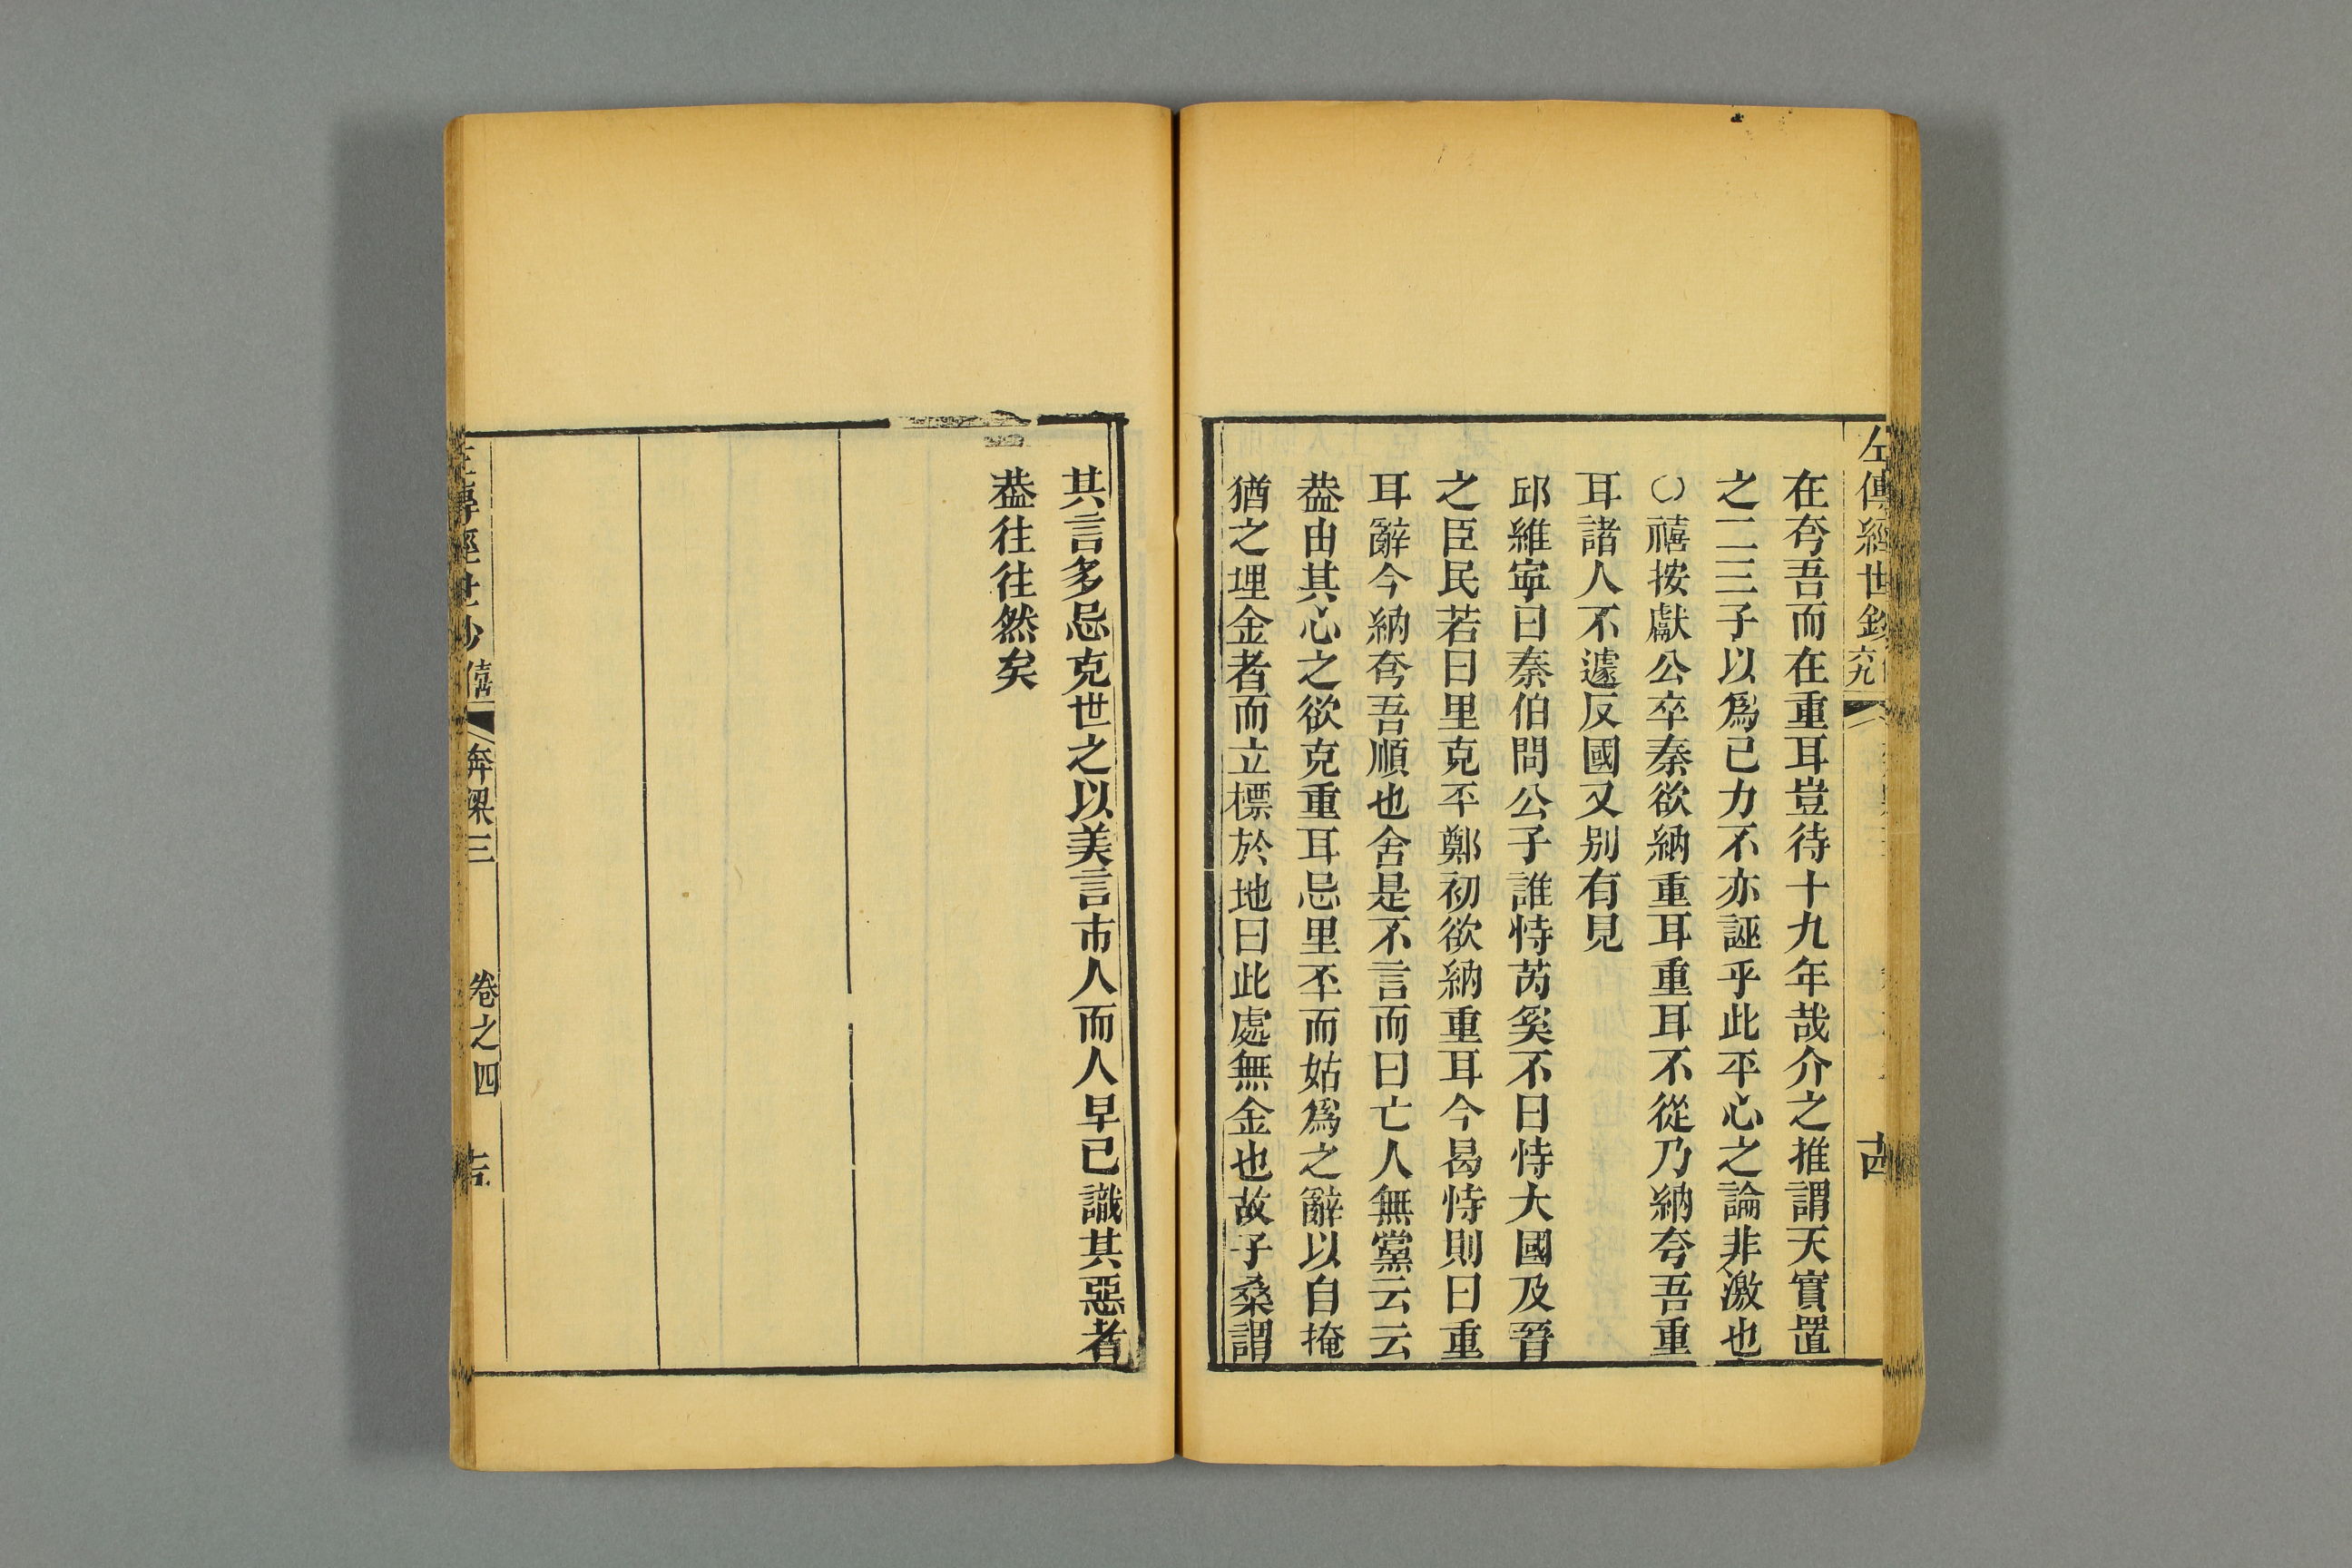 左傳經世鈔
在夸吾而在重耳豈待十九年哉介之推謂天實置
之二三子以爲已力不亦誣乎此平心之論非激也
〇禧按獻公卒秦欲納重耳重耳不從乃納夸吾重
耳諸人不遽反國又別有見
邱維寕曰秦伯問公子誰恃芮奚不曰恃大國及晉
之臣民若曰里克丕鄭初欲納重耳今曷恃則曰重
耳辭今納夸吾順也舍是不言而曰亡人無黨云云
葢由其心之欲克重耳忌里丕而姑爲之辭以自掩
猶之埋金者而立標於地曰此處無金也故子桑謂
其言多忌克世之以美言市人而人早已識其惡者
葢往往然矣
左傳經世鈔 僖 奔梁三 卷之四